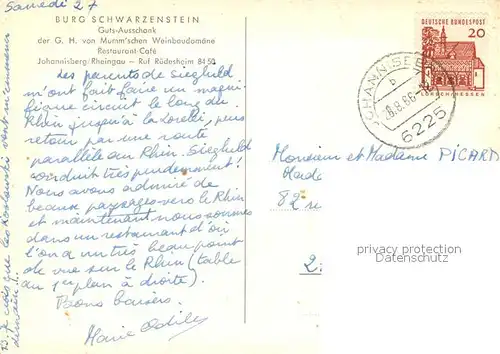 Samedi 27
BURG SCHWARZENSTEIN
Guts-Ausschank
der G. H. von Mumm'schen Weinbaudomäne
Restaurant-Café
Johannisberg/Rheingau – Ruf Rüdesheim 8450
Les parents de Sieghild
m'ont fait faire un magni-
fique circuit le long du
Rhin jusqu'à la Lorelei, puis
retour par une route
parallèle au Rhin. Sieghild
conduit très prudemment!
Nous avons admiré de
beaux paysages vers le Rhin
et maintenant nous sommes
dans un restaurant d'où
l'on a un très beau point
de vue sur le Rhin (table
au 1er plan à droite).
Bons baisers.
Marie Odile
je crois que les vont
DEUTSCHE BUNDESPOST
20
LORSCH/HESSEN
b
.8.66
6225
Monsieur et Madame PICAR
82
2
privacy protection
Datenschutz